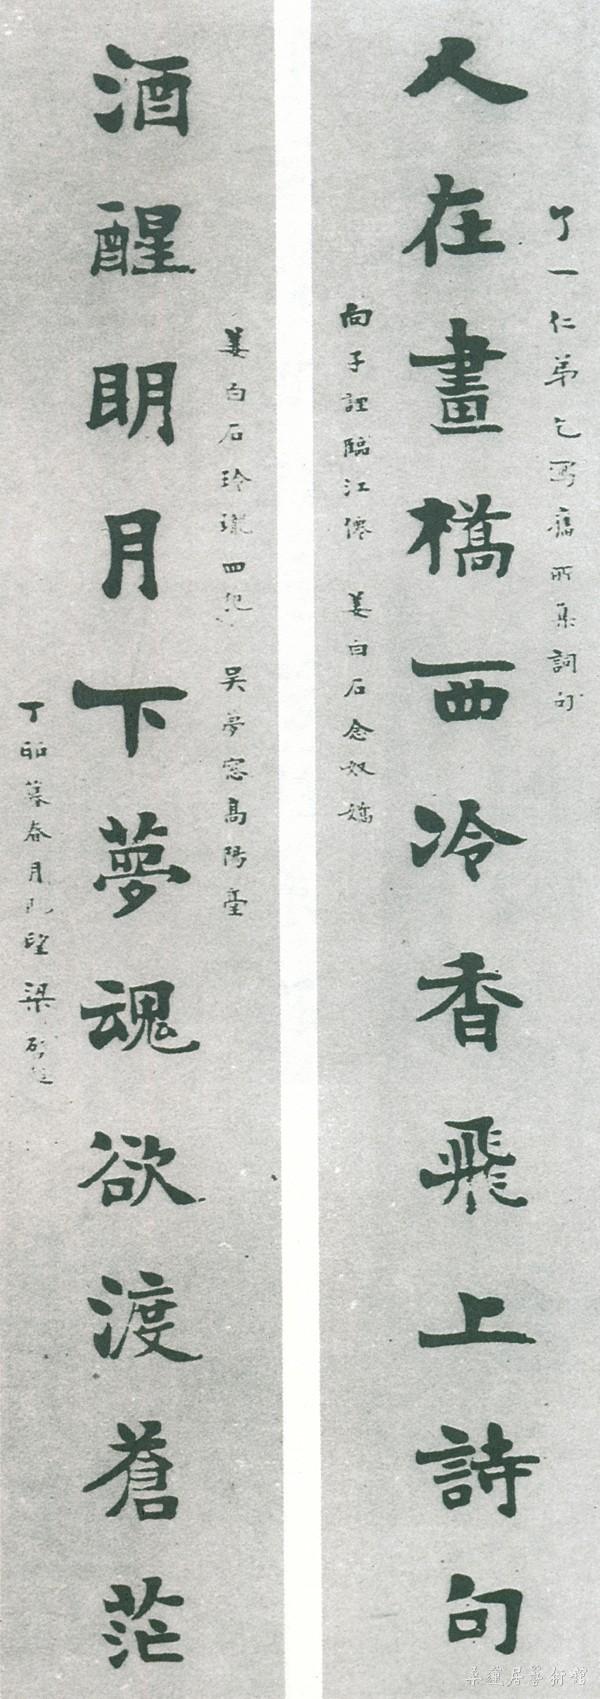 了一仁弟乞寫舊所集詞句
人在畫橋西冷香飛上詩句
向子諲臨江僊 姜白石念奴嬌
姜白石玲瓏四犯 吳夢窓高陽臺
酒醒明月下夢魂欲渡蒼茫
丁卯暮春月既望 梁啟超
桑蓮居藝術館